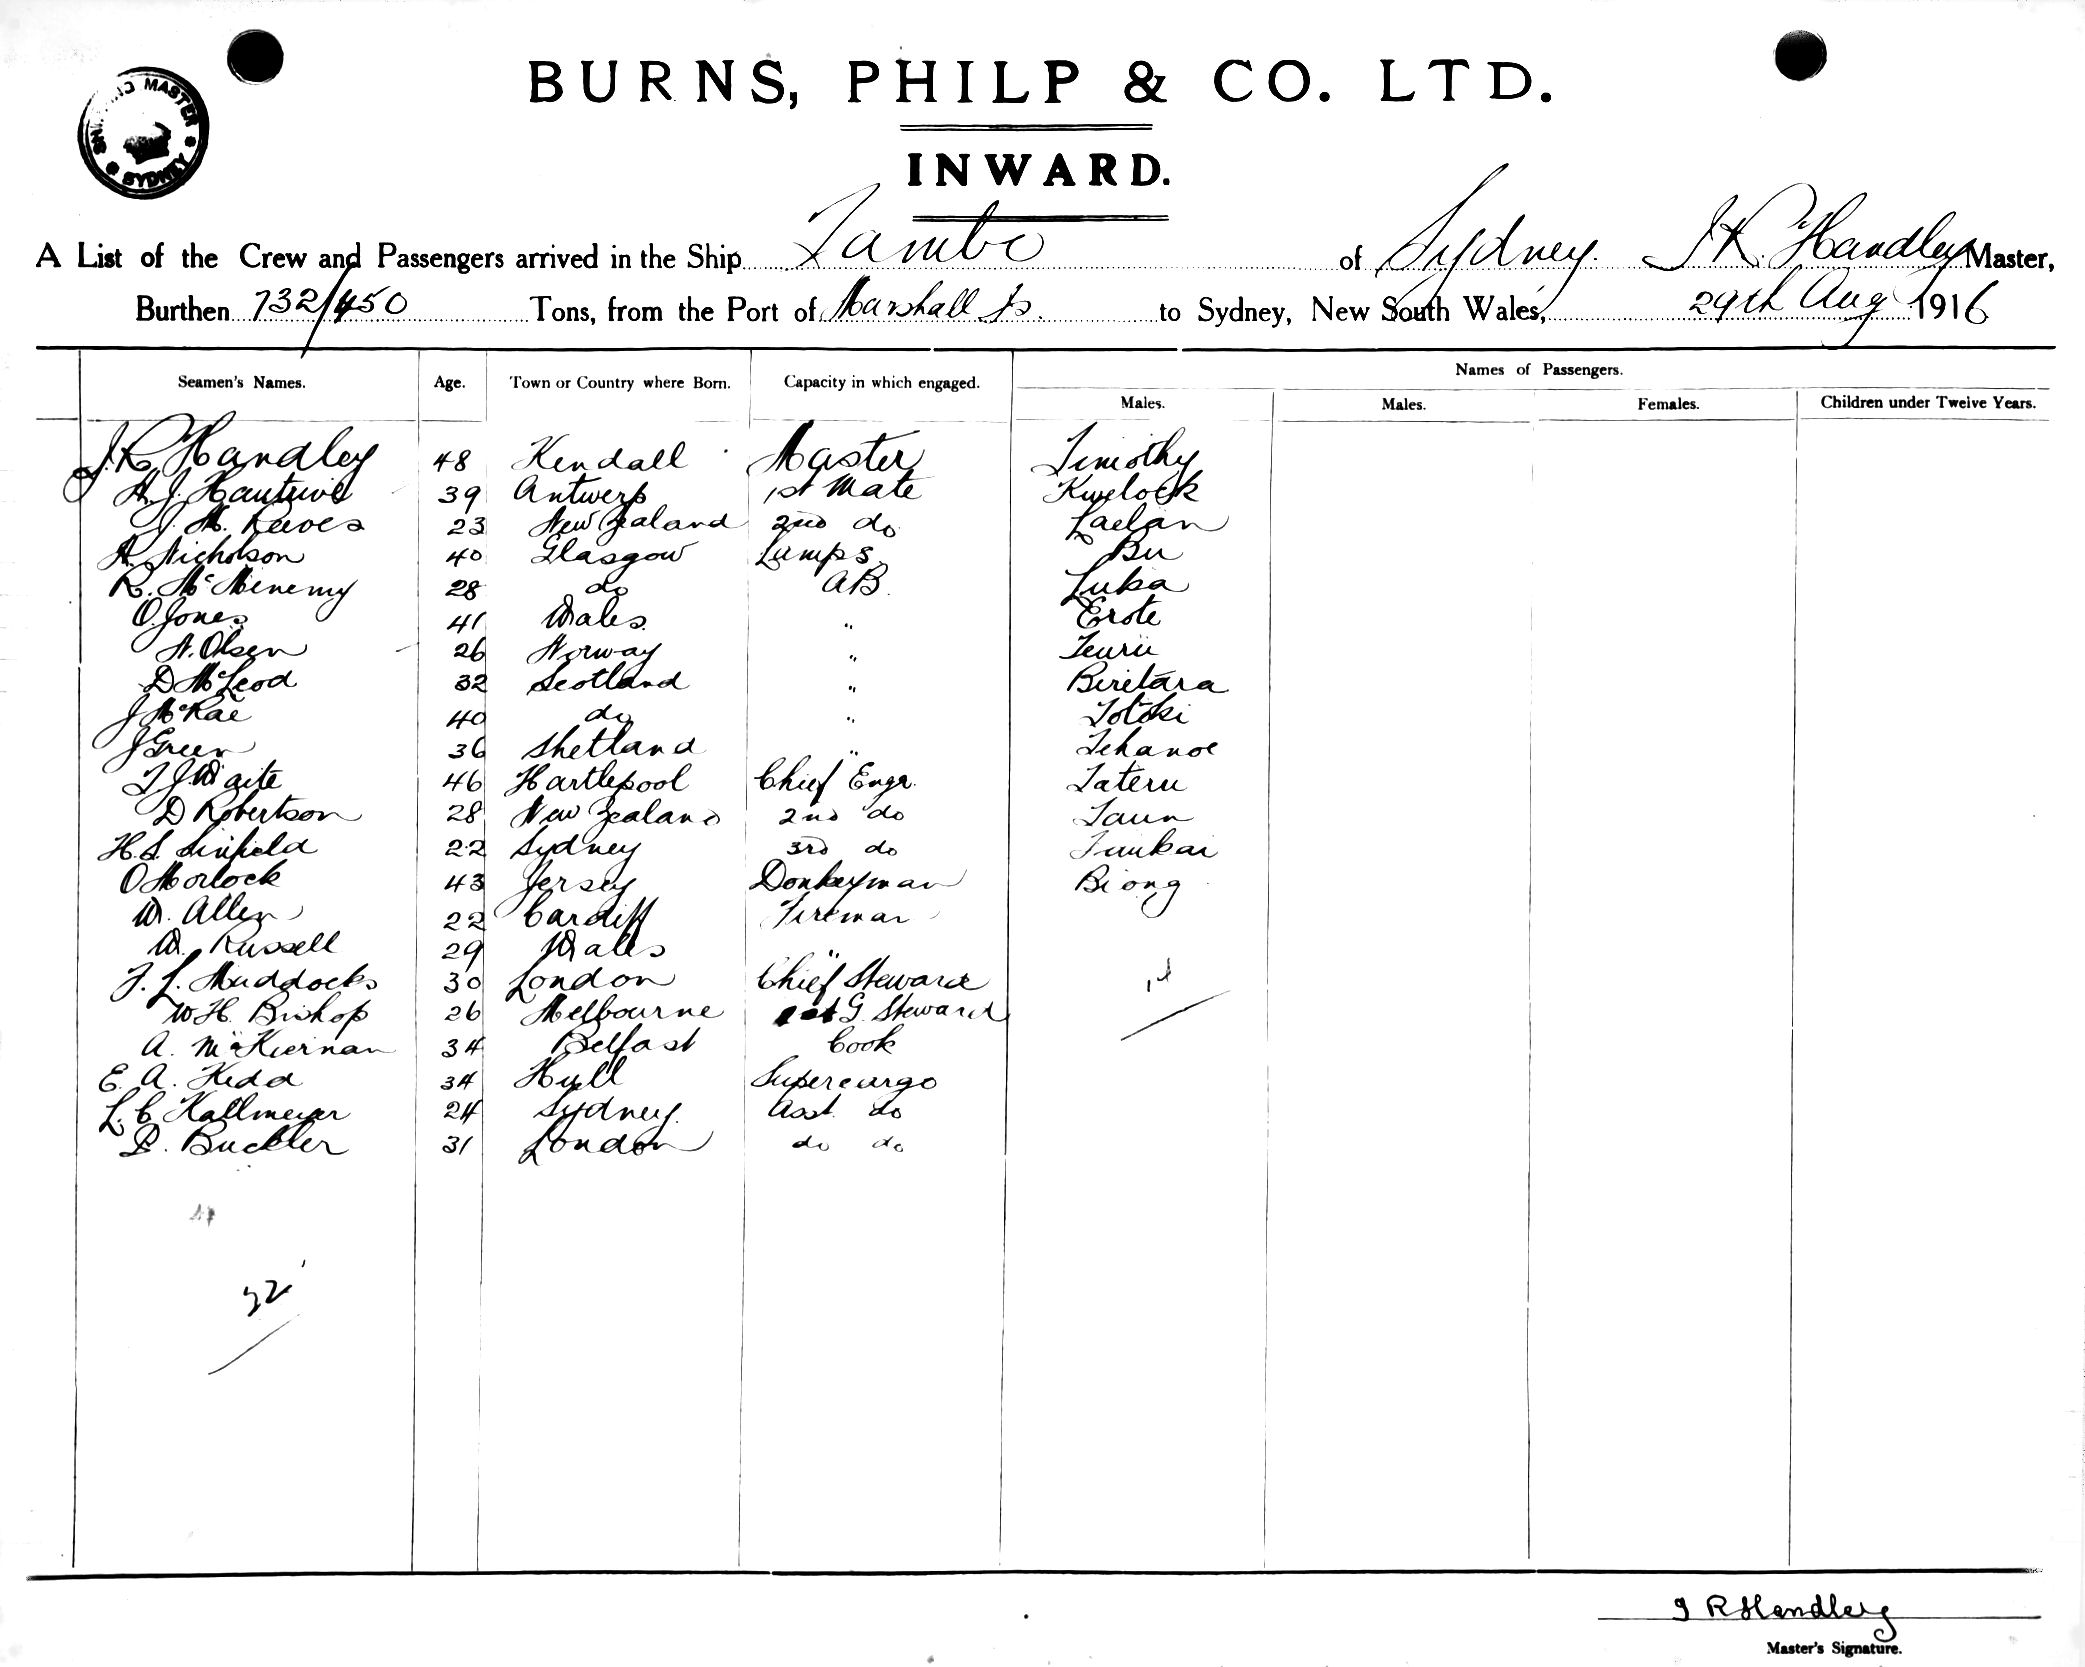 BURNS, PHILP & CO. LTD.
INWARD.
SHIPPING MASTER SYDNEY
A List of the Crew and Passengers arrived in the Ship Tambo of Sydney. J R Handley Master,
Burthen 732/450 Tons, from the Port of Marshall Is. to Sydney, New South Wales, 29th Aug 1916
Seamen's Names. Age. Town or Country where Born. Capacity in which engaged. Names of Passengers.
Males. Males. Females. Children under Twelve Years.
J. R. Handley 48 Kendall Master Timothy
A. J. Hautrive 39 Antwerp 1st Mate Kwelock
J. M. Reeves 23 New Zealand 2nd do Laelan
A. Nicholson 40 Glasgow Lamps Bu
R. McMinemy 28 do AB Luka
O. Jones 41 Wales " Erote
A. Olsen 26 Norway " Teurii
D McLeod 32 Scotland " Biretara
J McRae 40 do " Totoki
J Green 36 Shetland " Tehanoe
T J. Waite 46 Hartlepool Chief Engr. Tateru
D Robertson 28 New Zealand 2nd do Taun
H. S. Sinfield 22 Sydney 3rd do Timkai
O Morlock 43 Jersey Donkeyman Biong
W. Allen 22 Cardiff Fireman
W. Russell 29 Wales "
F. L. Maddocks 30 London Chief Steward
W H. Bishop 26 Melbourne G. Steward
A. McKiernan 34 Belfast Cook
E. A. Kidd 34 Hull Supercargo
L. C Kallmeyer 24 Sydney. Asst. do
B. Buckler 31 London do do
22
J R Handley
Master's Signature.